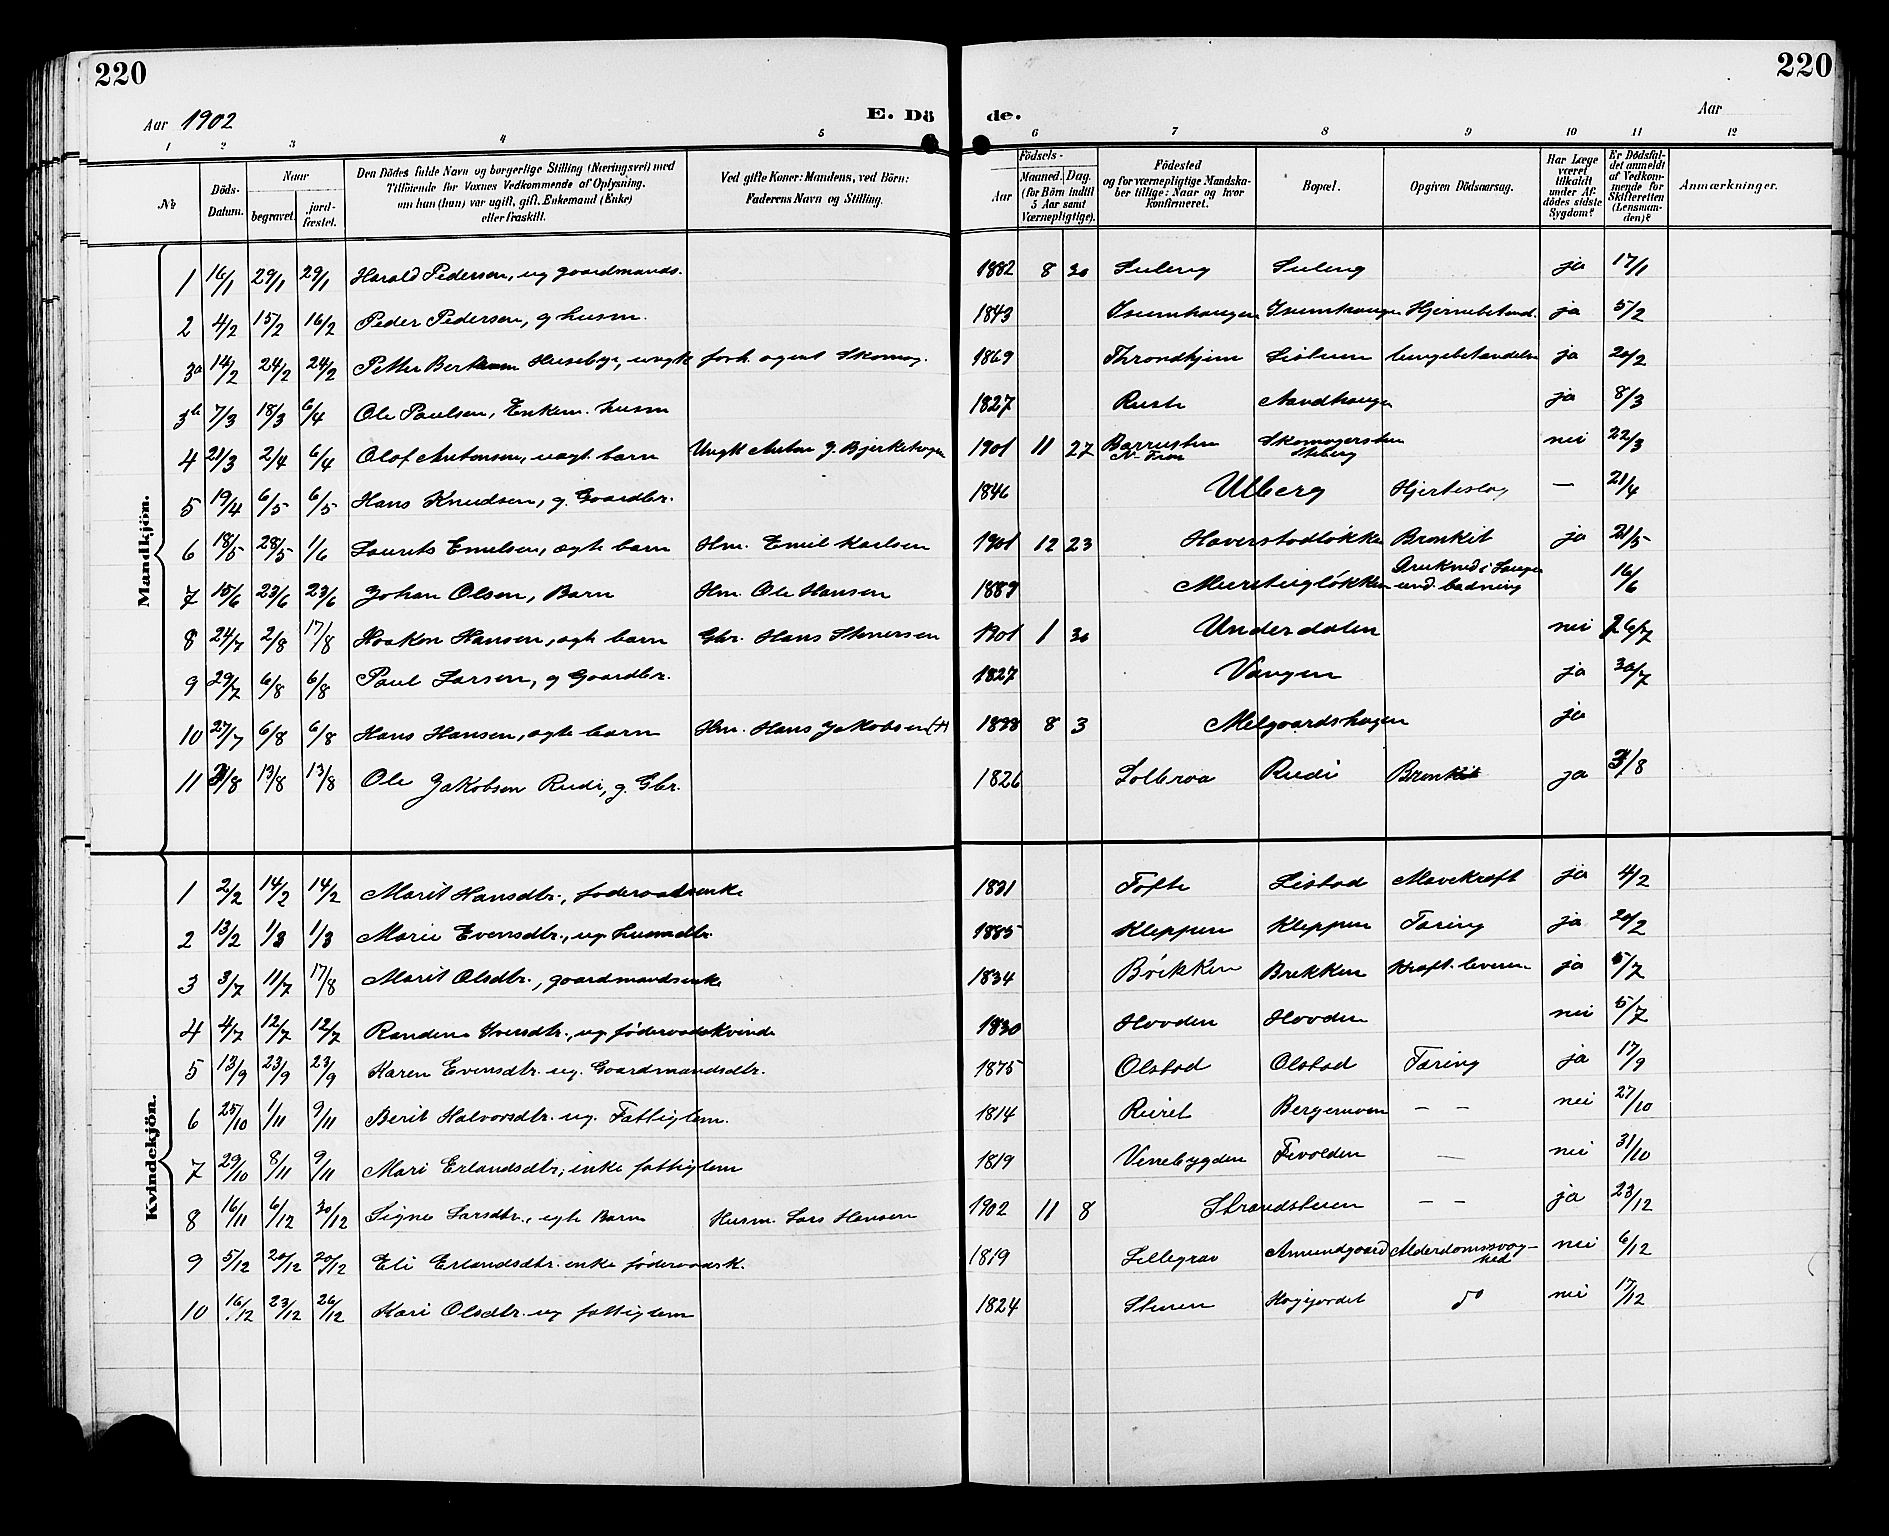 220
220
Aar 1902
E. Dö de.
Aar
1 2 3 4 5 6 7 8 9 10 11 12
No
Döds-Datum.
Naar begravet. jord-fæstet.
Den Dödes fulde Navn og borgerlige Stilling (Næringsvei) med Tilföiende for Voxnes Vedkommende af Oplysning, om han (hun) var ugift, gift, Enkemand (Enke) eller fraskilt.
Ved gifte Koner: Mandens, ved Börn: Faderens Navn og Stilling.
Födsels- Aar Maaned. Dag. (for Börn indtil 5 Aar samt Værnepligtige).
Födested og for værnepligtige Mandskaber tillige: Naar og hvor konfirmeret.
Bopæl.
Opgiven Dödsaarsag.
Har Læge været tilkaldt under Afdödes sidste Sygdom?
Er Dödsfaldet anmeldt af Vedkommende for Skifteretten (Lensmanden)?
Anmærkninger.
Mandkjön.
1 16/1 29/1 29/1 Harald Pedersen, ug gaardmands. 1882 8 30 Suleng Suleng ja 17/1
2 4/2 15/2 16/2 Peder Pedersen, g husm. 1843 Isumhaugen Isumhaugen Hjernebetænd. ja 5/2
3a 14/2 24/2 24/2 Petter Huseby, ungk forh. agent Skomag. 1869 Throndhjem ja 20/2
3b 7/3 18/3 6/4 Ole Paulsen, Enkem. husm 1827 Rusti ja 8/3
4 21/3 2/4 6/4 Olaf Antonsen, uægt. barn Ungk Anton J. Bjerkehagen 1901 11 27 N-Fron nei 22/3
5 19/4 6/5 6/5 Hans Knudsen, g. Gaardbr. 1846 Ulberg Hjerteslag — 21/4
6 18/5 28/5 1/6 Laurits Emelsen, ægte barn Hm. Emil Karlsen 1901 12 23 Haverstadløkke Bronkit ja 21/5
7 15/6 23/6 23/6 Johan Olsen, Barn Hm. Ole Hansen 1889 Druknet i Laagen und. badning 16/6
8 24/7 2/8 17/8 Haakon Hansen, ægte barn Gbr. Hans Stenersen 1901 1 30 Underdalen nei 26/7
9 29/7 6/8 6/8 Paul Larsen, g Gaardbr. 1827 Vangen ja 30/7
10 27/7 6/8 6/8 Hans Hansen, ægte barn Hm. Hans Jakobsen (+) 1898 8 3 Melgaardshagen ja
11 13/8 13/8 Ole Jakobsen Rudi, g. Gbr. 1826 Solbraa Rudi Bronkit ja 3/8
Kvindekjön.
1 2/2 14/2 14/2 Marit Hansdtr., føderaadsenke 1821 Tofte Listad Mavekræft ja 4/2
2 13/2 1/3 1/3 Marie Evensdtr., ug. husmdtr. 1885 Kleppen Kleppen Tæring ja 20/2
3 3/7 11/7 17/8 Marit Olsdtr., gaardmandsenke 1834 Brekken Kræft. leveren ja 5/7
4 4/7 12/7 12/7 Randine Iversdtr., ug føderaadskvinde 1830 Hovden Hovden nei 5/7
5 13/9 23/9 23/9 Karen Evensdtr. ug. Gaardmandsdtr. 1875 Olstad Olstad Tæring ja 17/9
6 25/10 1/11 9/11 Berit Halvorsdtr. ug. Fattiglem. 1814 Ruret Bergemoen — — nei 27/10
7 29/10 8/11 9/11 Mari Erlandsdtr., enke fattiglem 1819 Venebygden Fivolden — nei 31/10
8 16/11 6/12 30/12 Signe Larsdtr., egte Barn Husm. Lars Hansen 1902 11 8 Strandstuen — — ja 23/12
9 5/12 20/12 20/12 Eli Erlandsdtr. enke føderaadsk. 1819 Lillegrav Amundgaard Alderdomssvaghed nei 6/12
10 16/12 23/12 26/12 Kari Olsdtr. ug fattiglem 1824 Stenen Hagejordet do nei 17/12